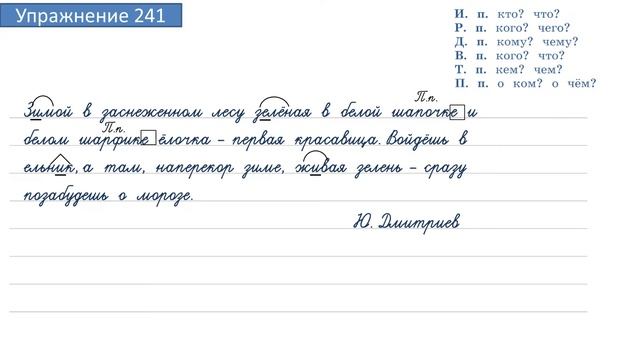 Упражнение 241
И. п. кто? что?
Р. п. кого? чего?
Д. п. кому? чему?
В. п. кого? что?
Т. п. кем? чем?
П. п. о ком? о чём?
П.п.
Зимой в заснеженном лесу зелёная в белой шапочке и
П.п.
белом шарфике ёлочка – первая красавица. Войдёшь в
ельник, а там, наперекор зиме, живая зелень – сразу
позабудешь о морозе.
Ю. Дмитриев